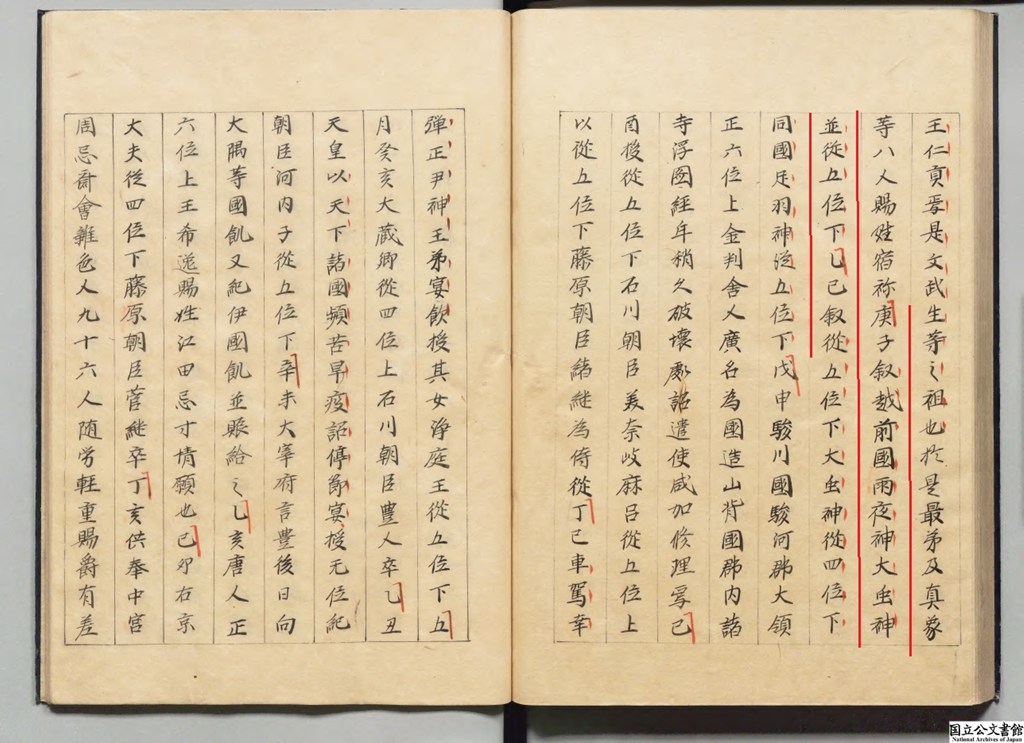 王仁貞等是文武生等之祖也於是最弟及真象
等八人賜姓宿祢庚子叙越前國雨夜神大虫神
並從五位下乙巳叙從五位下大虫神從四位下
同國足羽神從五位下戊申駿川國駿河郡大領
正六位上金判舍人廣名為國造山背國郡内諸
寺浮圖經年稍久破壞處詔遣使咸加修理焉己
酉授從五位下石川朝臣美奈岐麻呂從五位上
以從五位下藤原朝臣緒継為侍從丁巳車駕幸
弾正尹神王弟宴飲授其女浄庭王從五位下五
月癸亥大藏卿從四位上石川朝臣豊人卒乙丑
天皇以天下諸國頻苦旱疫詔停節宴授无位紀
朝臣河内子從五位下辛未大宰府言豊後日向
大隅等國飢又紀伊國飢並賑給之乙亥唐人正
六位上王希逸賜姓江田忌寸情願也己卯右京
大夫從四位下藤原朝臣菅継卒丁亥供奉中宮
周忌斎會雜色人九十六人随労軽重賜爵有差
国立公文書館
National Archives of Japan